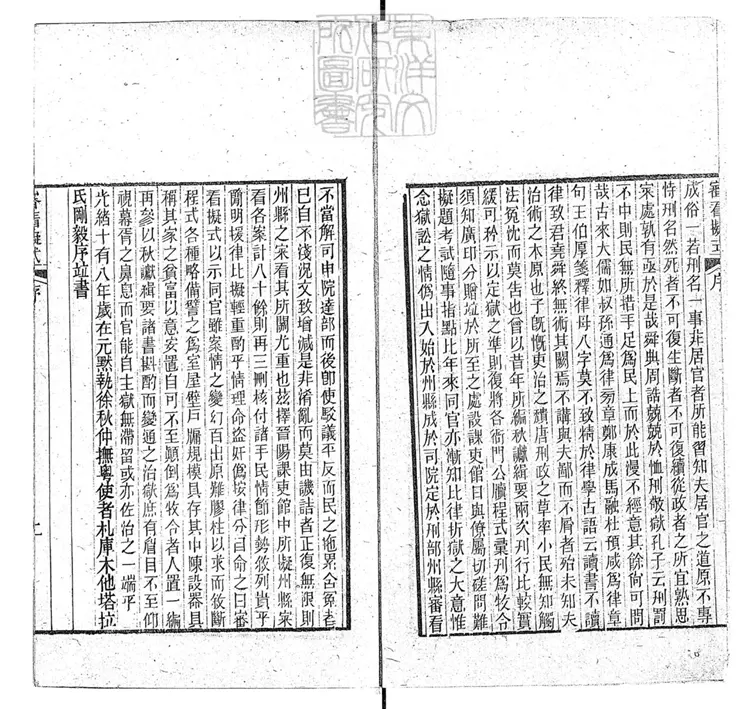 審看擬式 序
成俗一若刑名一事非居官者所能習知夫居官之道原不專
恃刑名然死者不可復生斷者不可復續從政者之所宜熟思
家處孰有亟於是哉舜典周誥兢兢於恤刑敬獄孔子云刑罰
不中則民無所措手足為民上而於此漫不經意其餘尙可問
哉古來大儒如叔孫通為律芻章鄭康成馬融杜預咸為律章
句王伯厚箋釋律母八字莫不致精於律學古語云讀書不讀
律致君堯舜終無術其關焉不講與夫鄙而不屑者殆未知夫
治術之本原也予旣慨吏治之隤唐刑政之草率小民無知觸
法寃沈而莫吿也曾以昔年所編秋讞緝要兩次刋行比較實
緩可矜示以定獄之準則復將各衙門公牘程式彙刋為牧令
須知廣印分贈竝於所至之處設課吏館日與僚屬切磋問難
擬題考試隨事指點比年來同官亦漸知比律折獄之大意惟
念獄訟之情偽出入始於州縣成於司院定於刑部州縣審看
不當解司申院達部而後卽使駁議平反而民之拖累含冤者
已自不淺況文致增減是非淆亂而莫由譏詰者正復無限則
州縣之宋看其所關尤重也玆擇晉陽課吏館中所擬州縣宋
看各案計八十餘則再三刪核付諸手民情節形勢敘列貴乎
簡明援律比擬輕重酌乎情理命盜奸偽按律分目命之曰審
看擬式以示同官雖案情之變幻百出原難膠柱以求而敘斷
程式各種略備譬之為室屋壁戶牖規模具存其中陳設器具
稱其家之貧富以意爲置自可不至顚倒為牧令者人置一編
再參以秋讞緝要諸書斟酌而變通之治獄庶有眉目不至仰
視幕胥之鼻息而官能自主獄無滯留或亦佐治之一端乎
光緒十有八年歲在元黓執徐秋仲撫粵使者札庫木他塔拉
氏剛毅序竝書